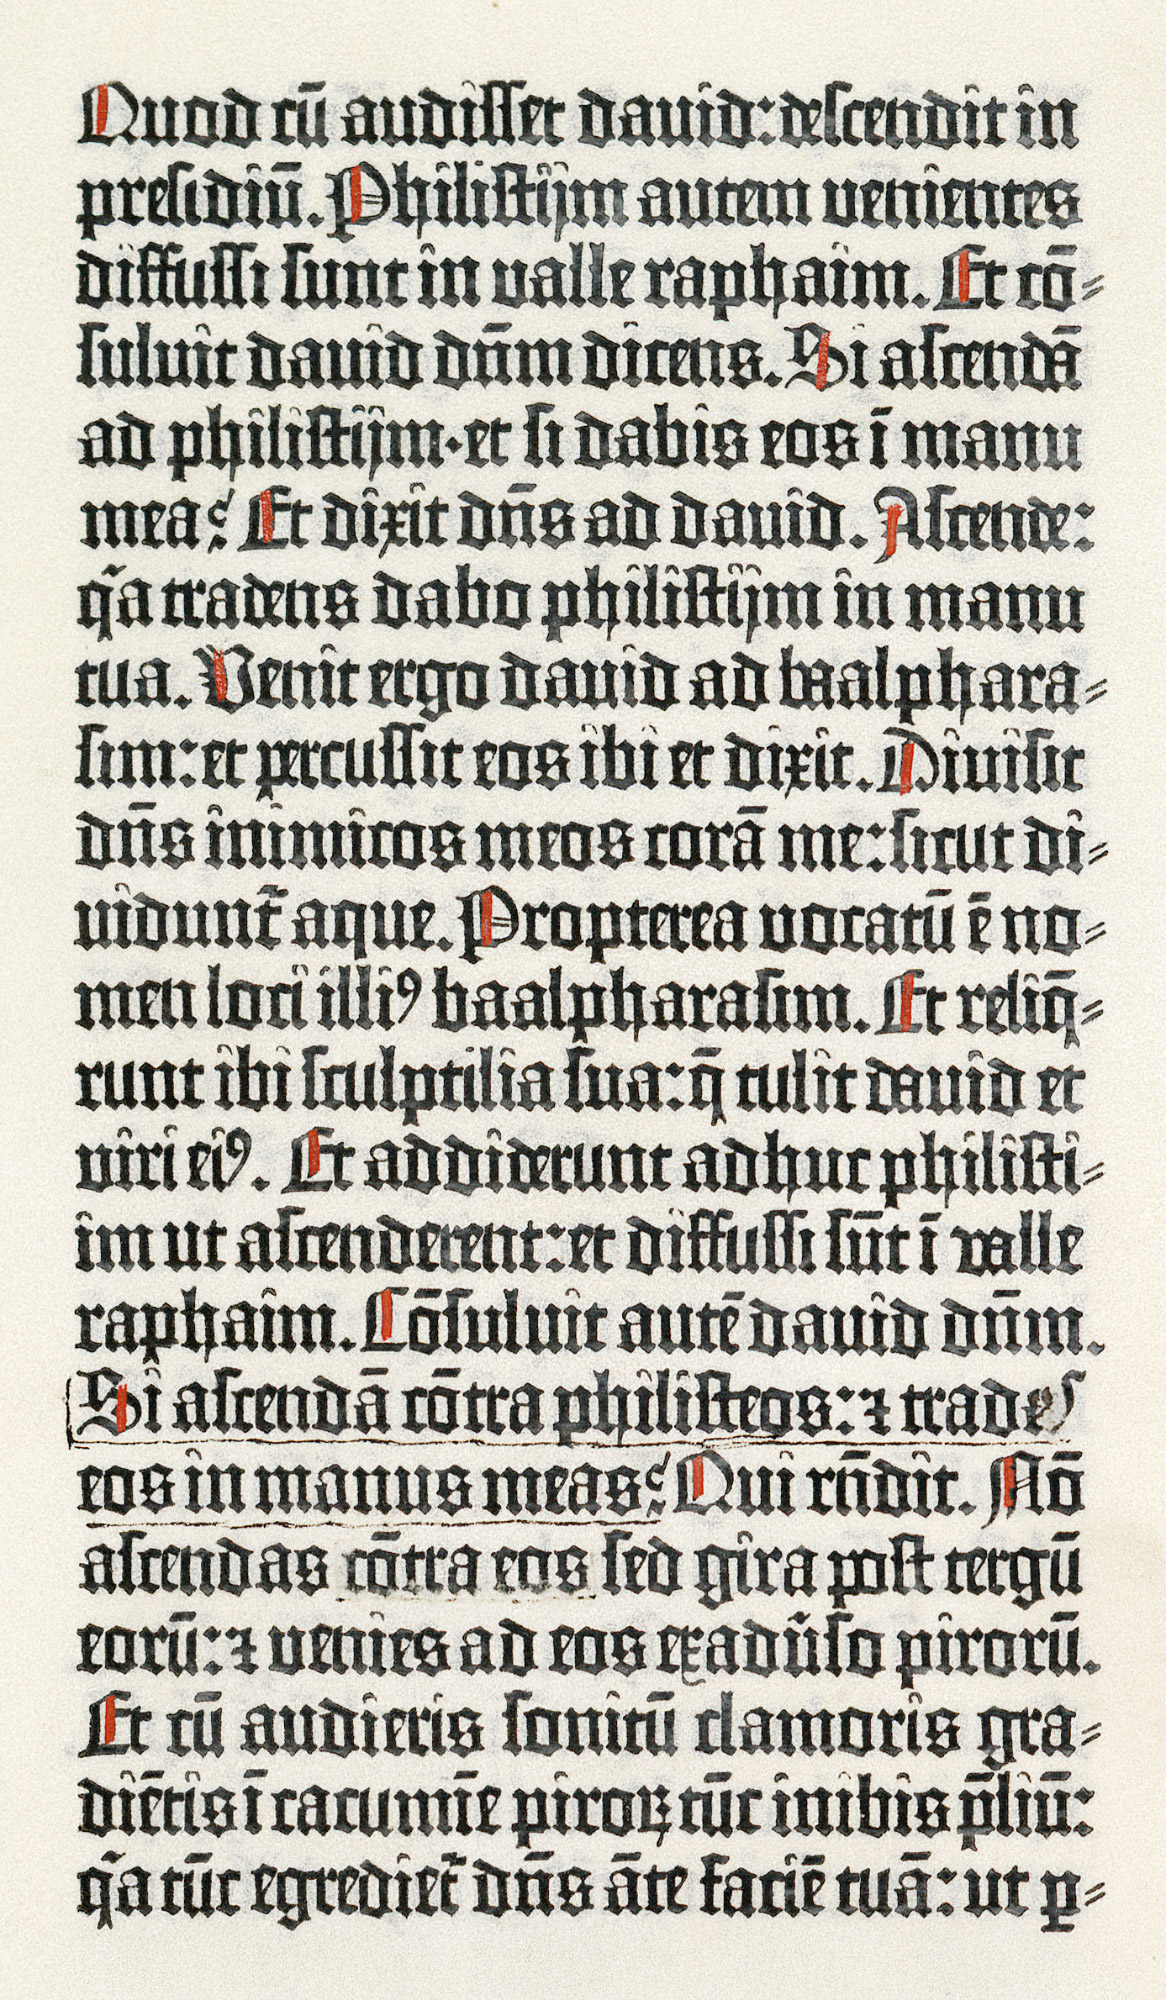 Quod cū audisset dauid: descendit in
presidiū. Philistijm autem venientes
diffussi sunt in valle raphaim. Et cō-
suluit dauid dn̄m dicens. Si ascendā
ad philistijm·et si dabis eos ī manu
mea? Et dixit dn̄s ad dauid. Ascende:
q̄a tradens dabo philistijm in manu
tua. Venit ergo dauid ad baalphara-
sim: et percussit eos ibi et dixit. Diuisit
dn̄s inimicos meos corā me: sicut di-
uidunt̄ aque. Propterea vocatū ē no-
men loci illiꝰ baalpharasim. Et reliq̄-
runt ibi sculptilia sua: q̄ tulit dauid et
viri eiꝰ. Et addiderunt adhuc philisti-
im ut ascenderent: et diffussi sūt ī valle
raphaim. Cōsuluit autē dauid dn̄m.
Si ascendā cōtra philisteos: ⁊ trades
eos in manus meas? Qui rn̄dit. Nō
ascendas cōtra eos sed gira post tergū
eorū: ⁊ venies ad eos exadūso pirorū.
Et cū audieris sonitū clamoris gra-
diētis ī cacumīe piroꝝ tūc inibis p̄liū:
q̄a tūc egrediet̄ dn̄s āte faciē tuā: ut ꝑ-